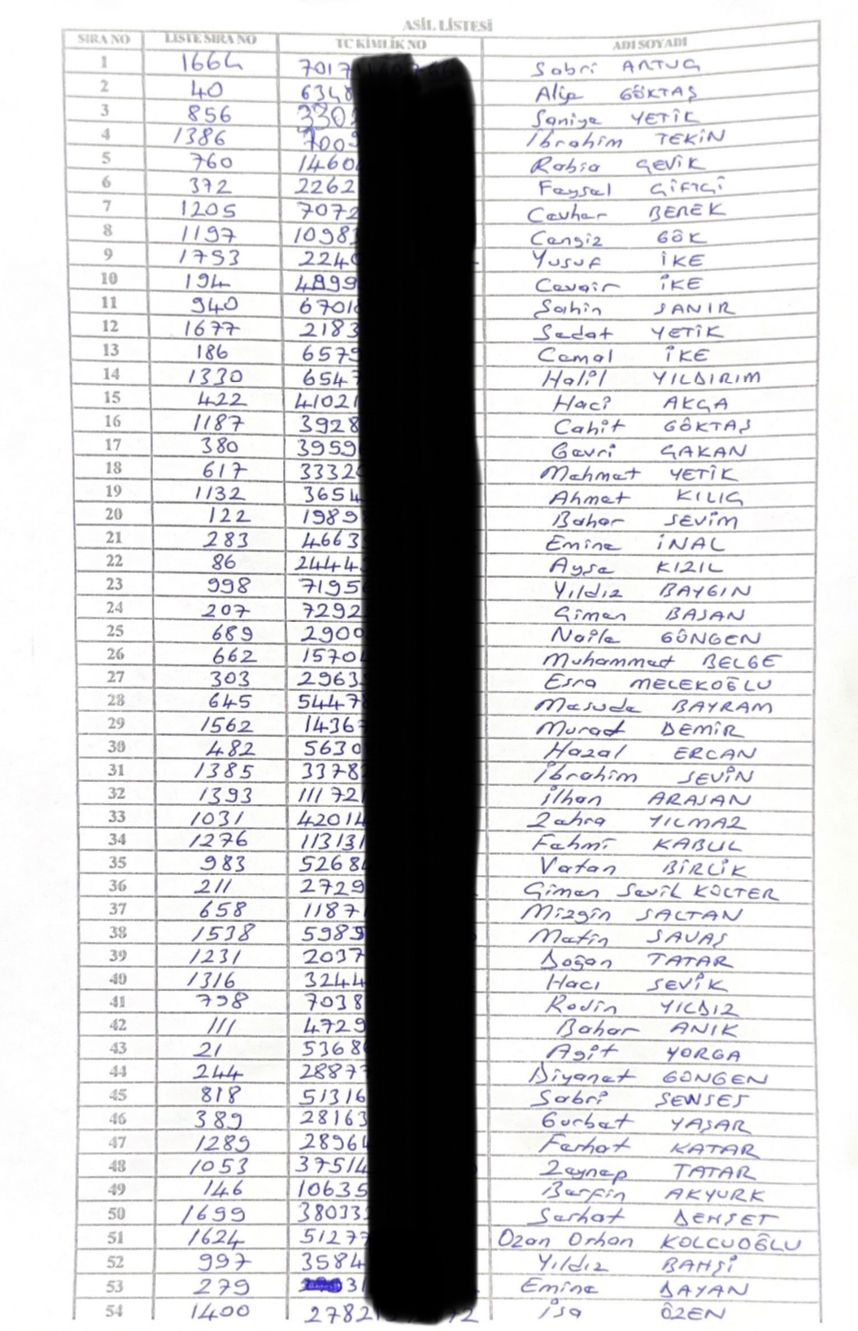 ASİL LİSTESİ
SIRA NO LİSTE SIRA NO TC KİMLİK NO ADI SOYADI
1 1664 7017 Sabri ARTUÇ
2 40 6348 Alip GÖKTAŞ
3 856 3302 Saniye YETİK
4 1386 7009 İbrahim TEKİN
5 760 1460 Rabia ÇEVİK
6 372 2262 Faysal ÇİFTÇİ
7 1205 7072 Cevher BEREK
8 1197 1098 Cengiz GÖK
9 1793 224 Yusuf İKE
10 194 4899 Cevair İKE
11 940 6701 Şahin ŞANIR
12 1677 2183 Sedat YETİK
13 186 6579 Cemal İKE
14 1330 654 Halil YILDIRIM
15 422 41021 Haci AKÇA
16 1187 3928 Cahit GÖKTAŞ
17 380 3959 Gavri ÇAKAN
18 617 3332 Mehmet YETİK
19 1132 3654 Ahmet KILIÇ
20 122 1989 Bahar SEVİM
21 283 4663 Emine İNAL
22 86 2444 Ayşe KIZIL
23 998 7195 Yıldız BAYGIN
24 207 7292 Çimen BAŞAN
25 689 2900 Naile GÜNGEN
26 662 1570 Muhammed BELGE
27 303 2963 Esra MELEKOĞLU
28 645 5447 Mesude BAYRAM
29 1562 1436 Murad DEMİR
30 482 5630 Hazal ERCAN
31 1385 3378 İbrahim SEVİN
32 1393 11172 İlhan ARAŞAN
33 1031 4201 Zehra YILMAZ
34 1276 11313 Fehmi KABUL
35 983 5268 Vatan BİRLİK
36 211 2729 Çimen Sevil KÜLTER
37 658 1187 Mizgin SALTAN
38 1538 5989 Metin SAVAŞ
39 1231 2037 Doğan TATAR
40 1316 3244 Hacı SEVİK
41 798 7038 Rodin YILDIZ
42 111 4729 Bahar ANIK
43 21 5368 Agit YORGA
44 244 2887 Diyanet GÜNGEN
45 818 51316 Sabri ŞENSES
46 389 28163 Gurbet YAŞAR
47 1289 2896 Ferhat KATAR
48 1053 37514 Zeynep TATAR
49 146 10635 Berfin AKYURK
50 1699 38033 Serhat DEHŞET
51 1624 5127 Ozan Orhan KOLCUOĞLU
52 997 3584 Yıldız BAHŞİ
53 279 31 Emine DAYAN
54 1400 2782 72 İsa ÖZEN